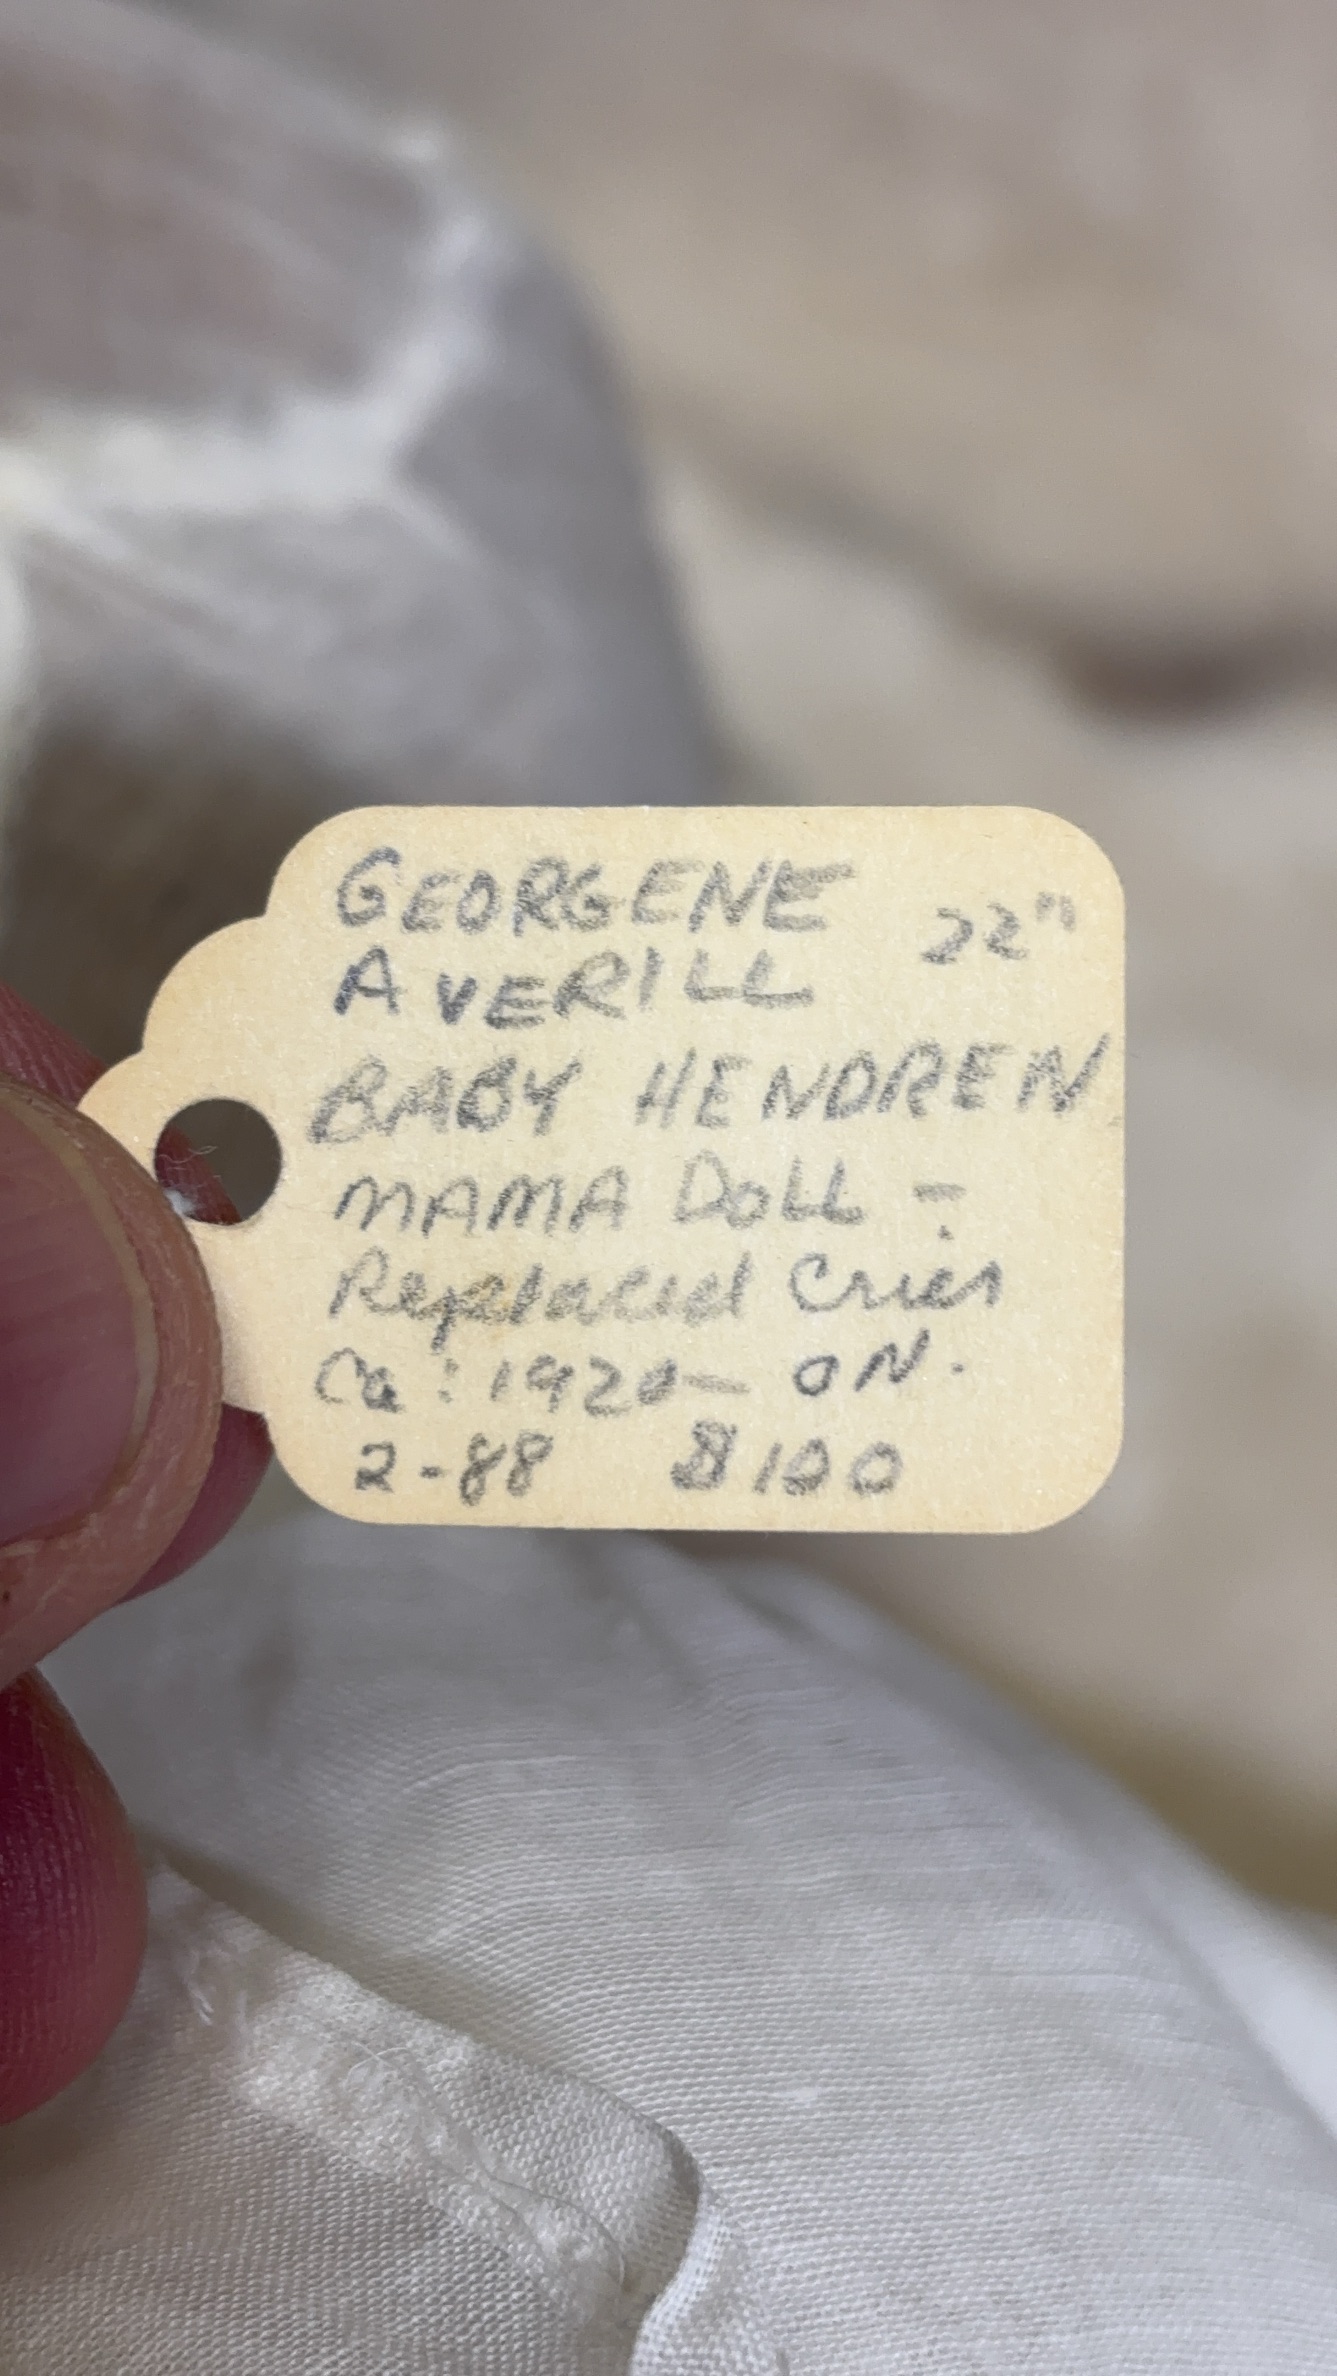 GEORGENE 22"
AVERILL
BABY HENDREN
MAMA DOLL -
Replaced Crier
Ca: 1920- ON.
2-88 $100